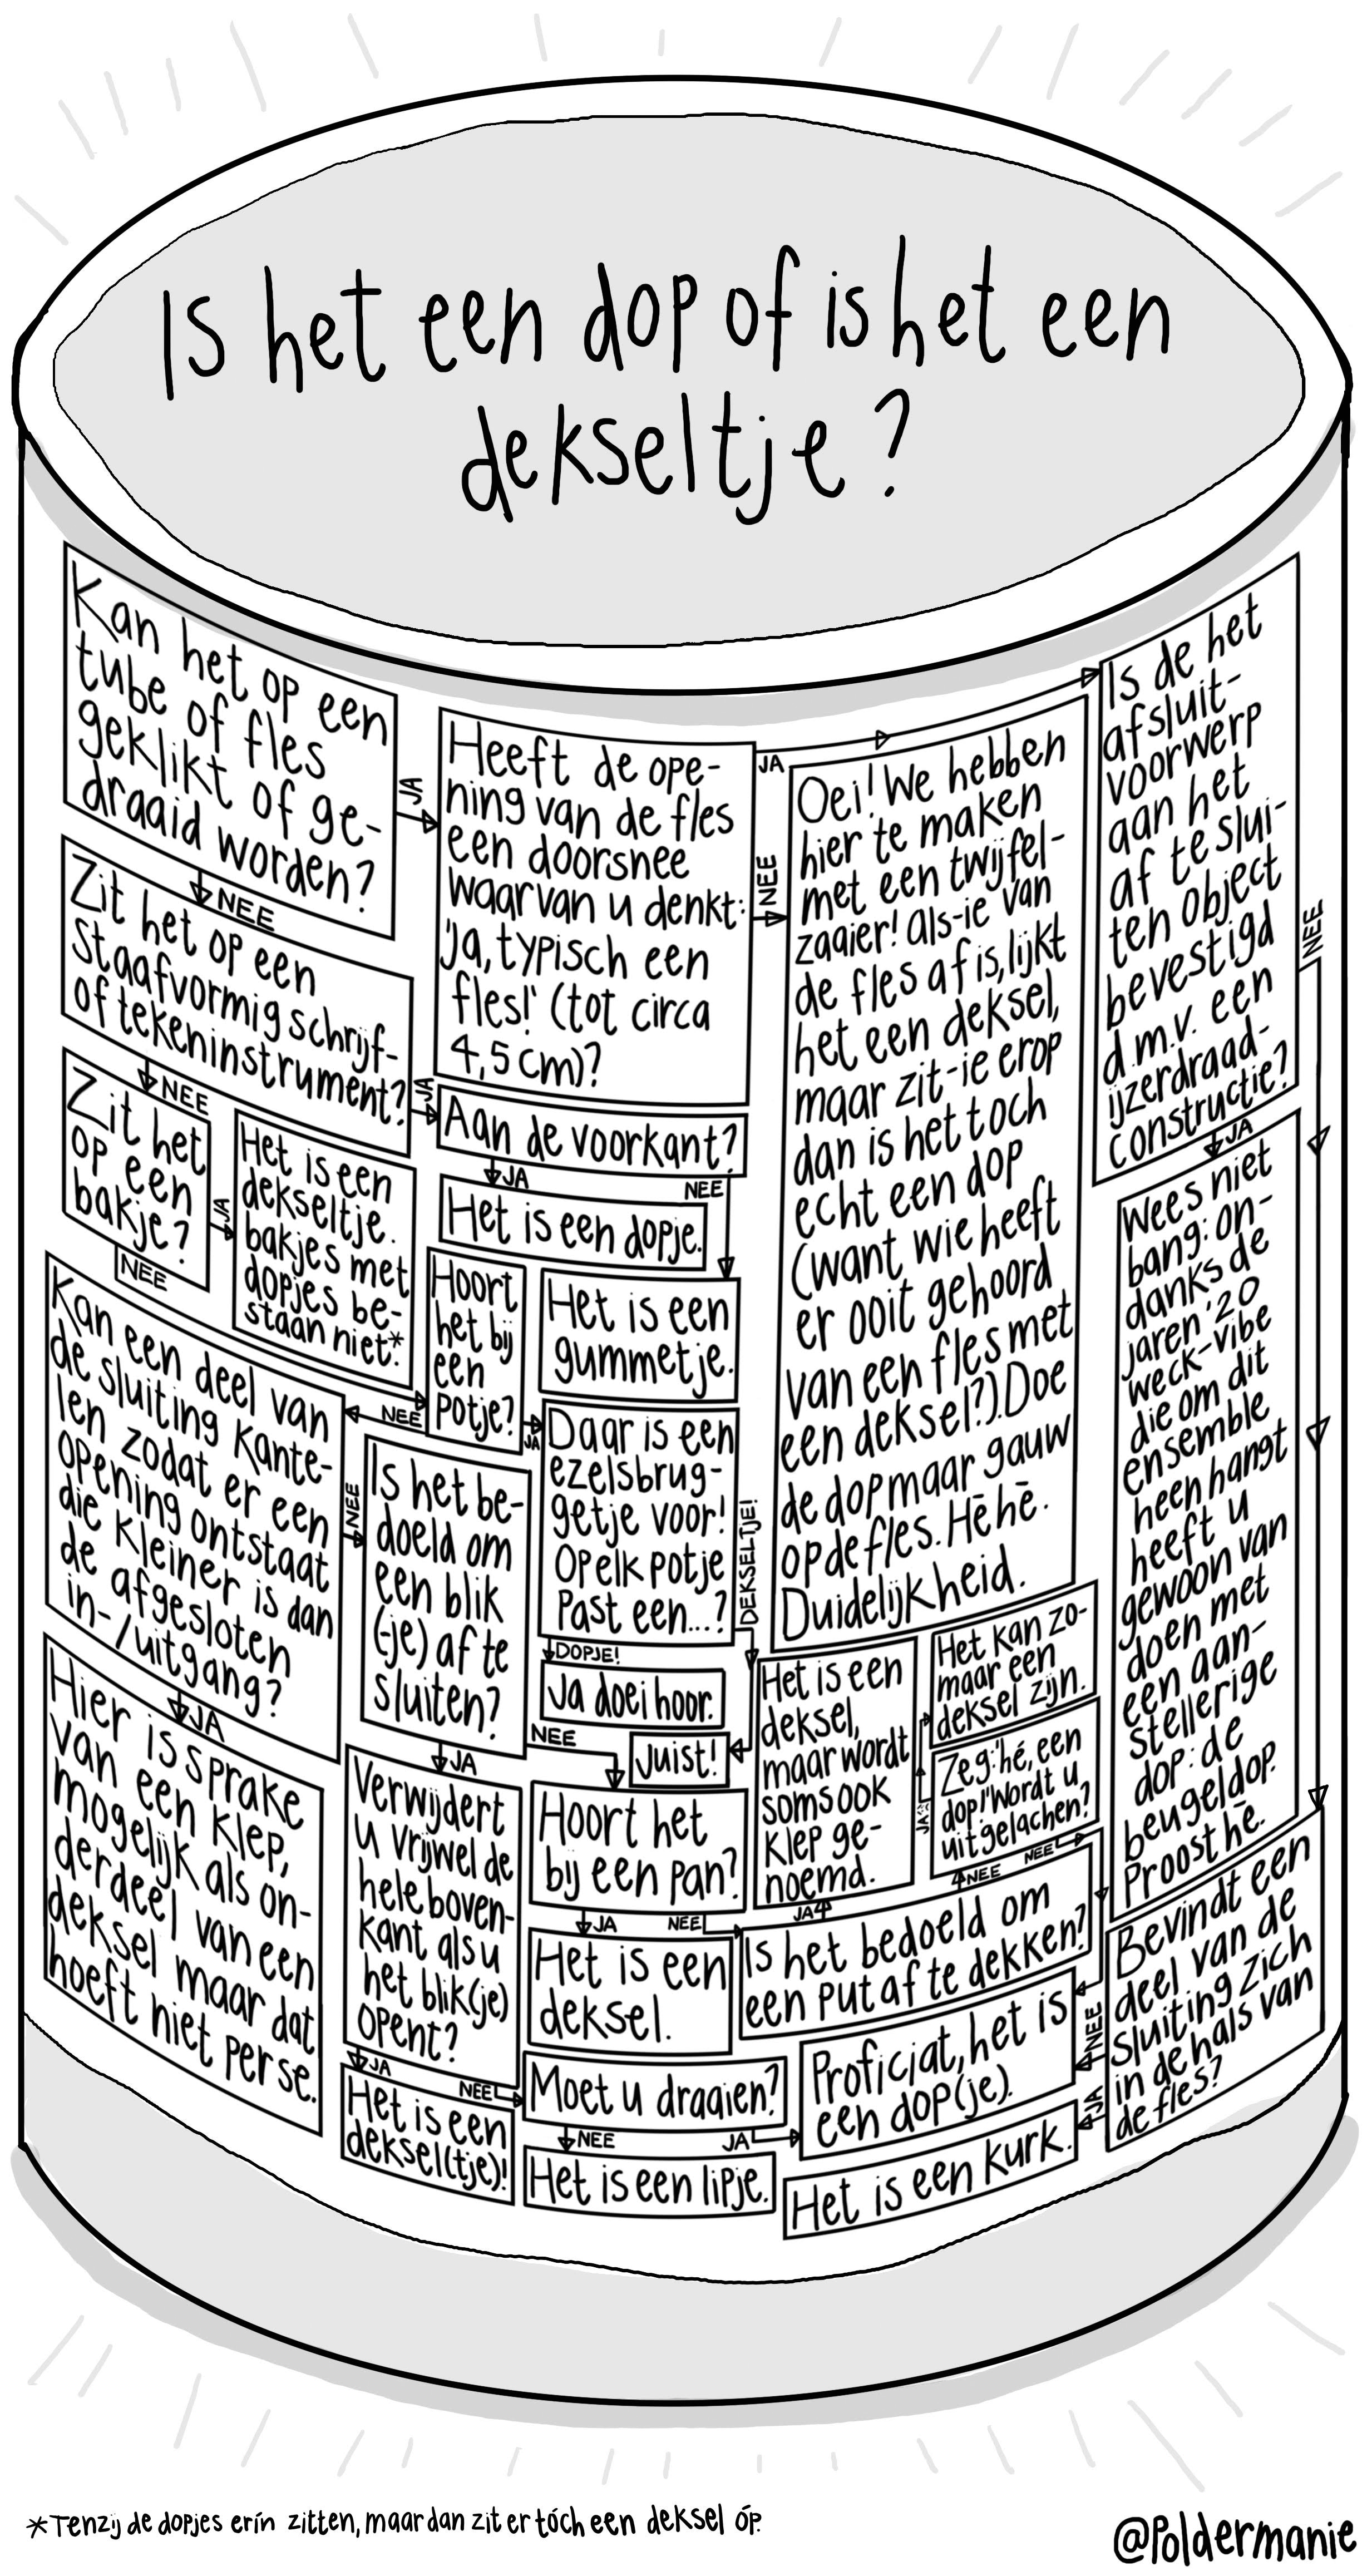 Is het een dop of is het een
dekseltje?
Kan het op een
tube of fles
geklikt of ge-
draaid worden?
JA
NEE
Zit het op een
staafvormig schrijf-
of tekeninstrument?
JA
NEE
Zit het
op een
bakje?
JA
NEE
Het is een
dekseltje.
bakjes met
dopjes be-
staan niet*.
Heeft de ope-
ning van de fles
een doorsnee
waarvan u denkt:
'Ja, typisch een
fles!' (tot circa
4,5 cm)?
JA
NEE
Aan de voorkant?
JA
NEE
Het is een dopje.
Het is een
gummetje.
Hoort
het bij
een
potje?
NEE
JA
Daar is een
ezelsbrug-
getje voor!
Op elk potje
past een...?
DOPJE!
DEKSELTJE!
Ja doei hoor.
Juist!
Kan een deel van
de sluiting kante-
len zodat er een
opening ontstaat
die kleiner is dan
de afgesloten
in-/uitgang?
NEE
JA
Hier is sprake
van een klep,
mogelijk als on-
derdeel van een
deksel maar dat
hoeft niet per se.
Is het be-
doeld om
een blik
(-je) af te
sluiten?
JA
NEE
Verwijdert
u vrijwel de
hele boven-
kant als u
het blik(je)
opent?
JA
NEE
Het is een
deksel(tje)!
Hoort het
bij een pan?
JA
NEE
Het is een
deksel.
Moet u draaien?
NEE
JA
Het is een lipje.
Oei! We hebben
hier te maken
met een twijfel-
zaaier! Als-ie van
de fles af is, lijkt
het een deksel,
maar zit-ie erop
dan is het toch
echt een dop
(want wie heeft
er ooit gehoord
van een fles met
een deksel?). Doe
de dop maar gauw
op de fles. Hēhē.
Duidelijkheid.
Het is een
deksel,
maar wordt
soms ook
klep ge-
noemd.
Het kan zo-
maar een
deksel zijn.
JA
Zeg: 'hé, een
dop!' Wordt u
uitgelachen?
NEE
NEE
JA
Is het bedoeld om
een put af te dekken?
Proficiat, het is
een dop(je).
Het is een kurk.
Is de het
afsluit-
voorwerp
aan het
af te slui-
ten object
bevestigd
d.m.v. een
ijzerdraad-
constructie?
NEE
JA
Wees niet
bang: on-
danks de
jaren '20
weck-vibe
die om dit
ensemble
heen hangt
heeft u
gewoon van
doen met
een aan-
stellerige
dop: de
beugeldop.
Proost hē.
Bevindt een
deel van de
sluiting zich
in de hals van
de fles?
NEE
JA
*Tenzij de dopjes erín zitten, maar dan zit er tóch een deksel óp.
@Poldermanie